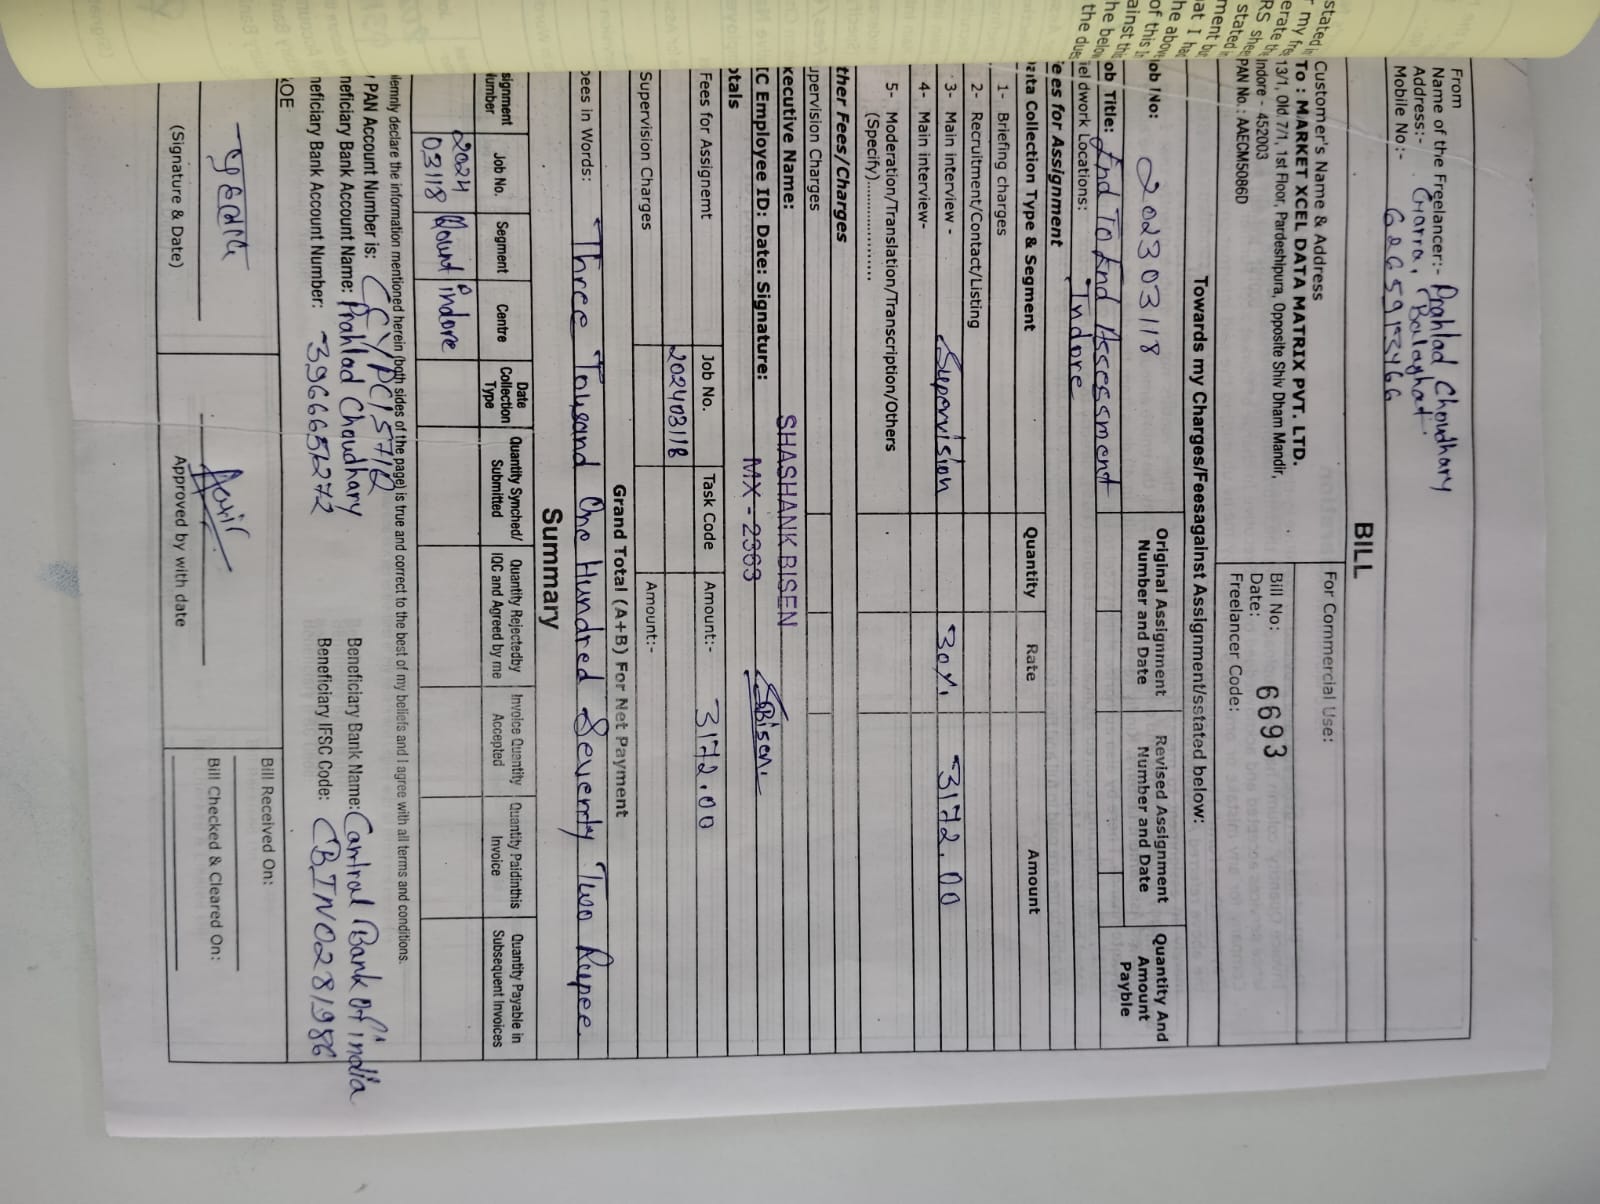 BILL
From
Name of the Freelancer:- Prahlad Choudhary
Address:- Garra, Balaghat.
Mobile No:- 6265913466
For Commercial Use:
Customer's Name & Address
To : MARKET XCEL DATA MATRIX PVT. LTD.
13/1, Old 7/1, 1st Floor, Pardeshipura, Opposite Shiv Dham Mandir,
Indore - 452003
PAN No.: AAECM5086D
Bill No: 6693
Date:
Freelancer Code:
Towards my Charges/Feesagainst Assignment/sstated below:
ob !No: 202303118
Original Assignment Number and Date
Revised Assignment Number and Date
Quantity And Amount Payble
ob Title: End To End Assessment
iel dwork Locations: Indore
ees for Assignment
ata Collection Type & Segment Quantity Rate Amount
1- Briefing charges
2- Recruitment/Contact/Listing
3- Main interview - Supervision 30%. 3172.00
4- Main interview-
5- Moderation/Translation/Transcription/Others
(Specify)..................
ther Fees/Charges
upervision Charges
xecutive Name: SHASHANK BISEN
IC Employee ID: Date: Signature: MX-2563 SBisen.
otals
Fees for Assignemt Job No. Task Code Amount:- 3172.00
202403118
Supervision Charges Amount:-
Grand Total (A+B) For Net Payment
pees in Words: Three Tousand One Hundred Seventy Two Rupee.
Summary
signment Number Job No. Segment Centre Date Collection Type Quantity Synched/ Submitted Quantity Rejectedby IQC and Agreed by me Invoice Quantity Accepted Quantity Paidinthis Invoice Quantity Payable in Subsequent Invoices
2024 03118 indore
lemnly declare the information mentioned herein (both sides of the page) is true and correct to the best of my beliefs and I agree with all terms and conditions.
PAN Account Number is: CFYPC1571Q
neficiary Bank Account Name: Prahlad Choudhary Beneficiary Bank Name: Cantral Bank Of india
neficiary Bank Account Number: 3966651272 Beneficiary IFSC Code: CBIN0281986
KOE
Bill Received On:
(Signature & Date)
Approved by with date
Bill Checked & Cleared On: